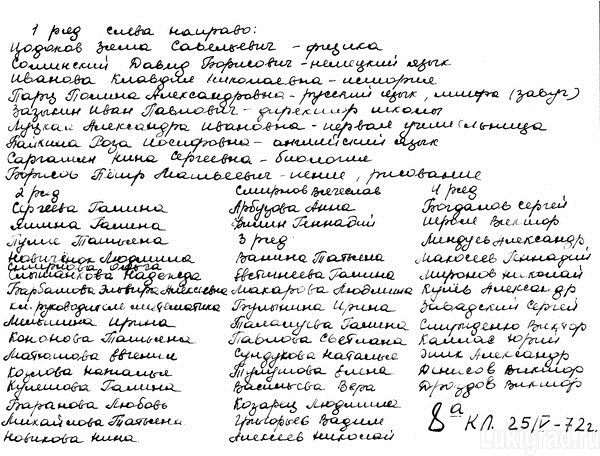 1 ряд слева направо:
Цодоков Зяма Савельевич - физика
Соминский Давид Борисович - немецкий язык
Иванова Клавдия Николаевна - история
Парц Полина Александровна - русский язык, литра (завуч)
Зазыкин Иван Павлович - директор школы
Луцкая Александра Ивановна - первая учительница
Найкина Роза Иосифовна - английский язык
Саргашян Нина Сергеевна - биология
Борисов Пётр Матвеевич - пение, рисование
2 ряд
Сергеева Галина
Галина
Татьяна
Новичёнок Людмила
Смирнова Ольга
Надежда
Барбашова Эльвира Алексеевна
кл. руководитель математика
Меньшина Ирина
Кононова Татьяна
Матюшова Евгения
Козлова Наталья
Кулешова Галина
Баранова Любовь
Михайлова Татьяна
Новикова Нина
Смирнов Вячеслав
Арбузова Анна
Вилин Геннадий
3 ряд
Ванина Татьяна
Евстигнеева Галина
Макарова Людмила
Булынина Ирина
Галина
Павлова Светлана
Сундукова Наталья
Елена
Васильева Вера
Козарец Людмила
Григорьев Вадим
Алексеев Николай
4 ряд
Богданов Сергей
Виктор
Линдусь Александр
Макосеев Геннадий
Миронов Николай
Александр
Завадский Сергей
Виктор
Юрий
Эник Александр
Денисов Виктор
Дроздов Виктор
8а КЛ. 25/V-72г.
Lukigrad.ru